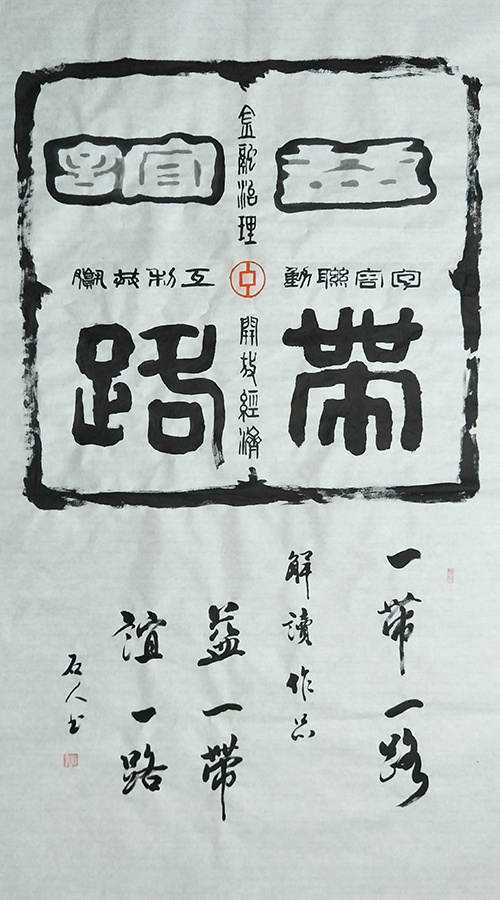 益帶
金融治理
開放經濟
包容聯動
互利共贏
誼路
一帶一路
解讀作品
益一帶
誼一路
石人书